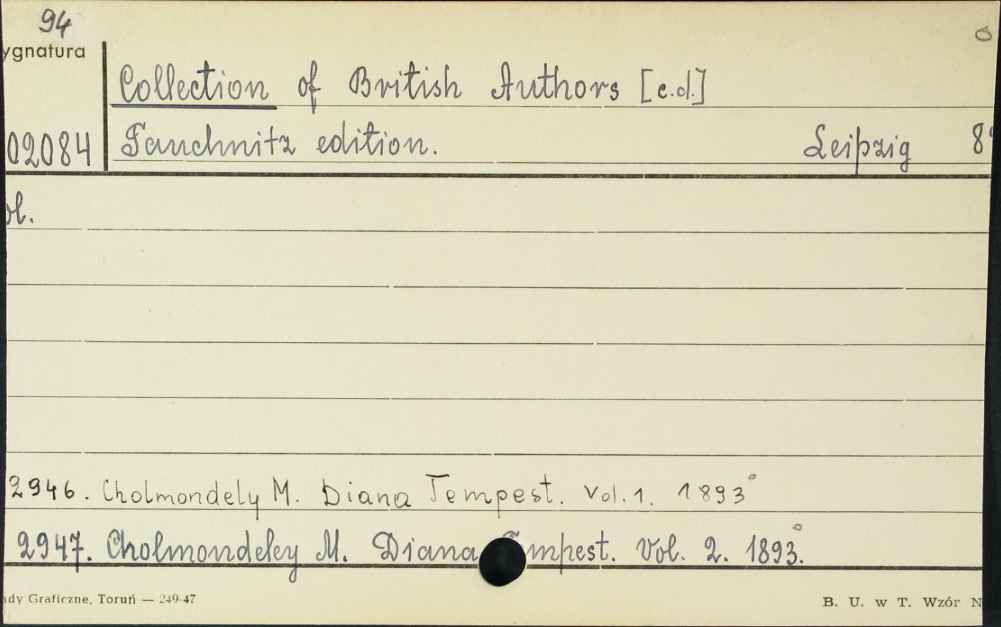 94
ygnatura
Collection of British Authors [c.d.]
02084 Tauchnitz edition. Leipzig 8°
ol.
2946. Cholmondely M. Diana Tempest. Vol. 1. 1893°
2947. Cholmondeley M. Diana mpest. Vol. 2. 1893°.
ady Graficzne, Toruń — 249-47 B. U. w T. Wzór N